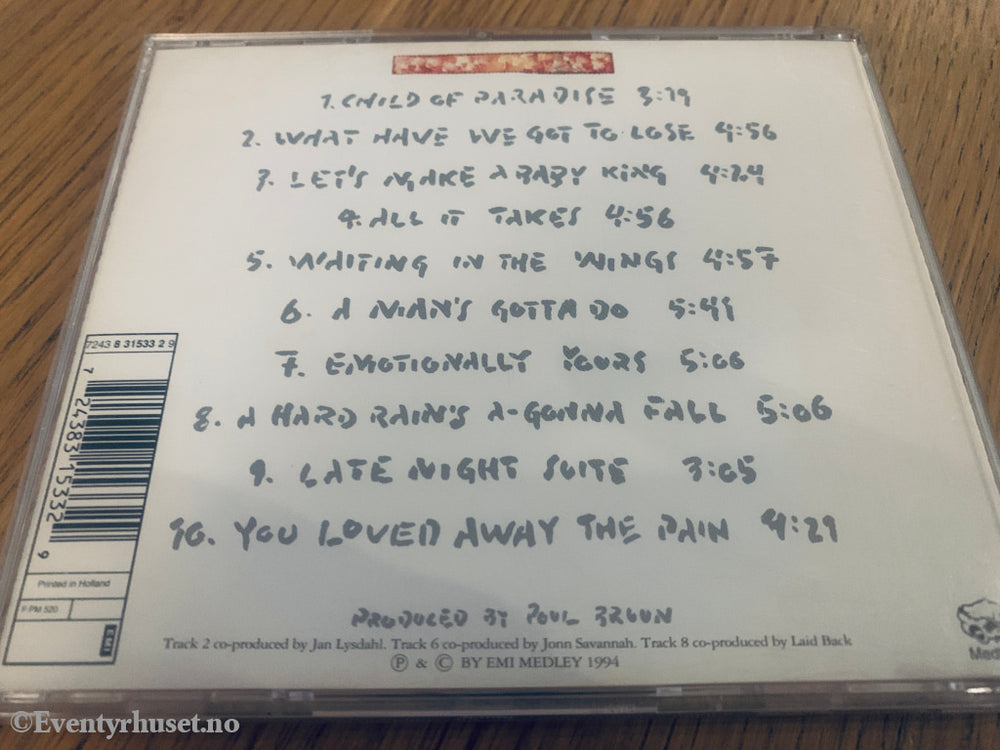 1. CHILD OF PARADISE 3:19
2. WHAT HAVE WE GOT TO LOSE 4:56
3. LET'S MAKE A BABY KING 4:24
4. ALL IT TAKES 4:56
5. WAITING IN THE WINGS 4:57
6. A MAN'S GOTTA DO 5:41
7. EMOTIONALLY YOURS 5:06
8. A HARD RAIN'S A-GONNA FALL 5:06
9. LATE NIGHT SUITE 3:05
10. YOU LOVED AWAY THE PAIN 4:21
PRODUCED BY POUL BRUUN
Track 2 co-produced by Jan Lysdahl. Track 6 co-produced by Jonn Savannah. Track 8 co-produced by Laid Back
Ⓟ & © BY EMI MEDLEY 1994
7243 8 31533 2 9
7 24383 15332 9
Printed in Holland
PM 520
EMI
©Eventyrhuset.no